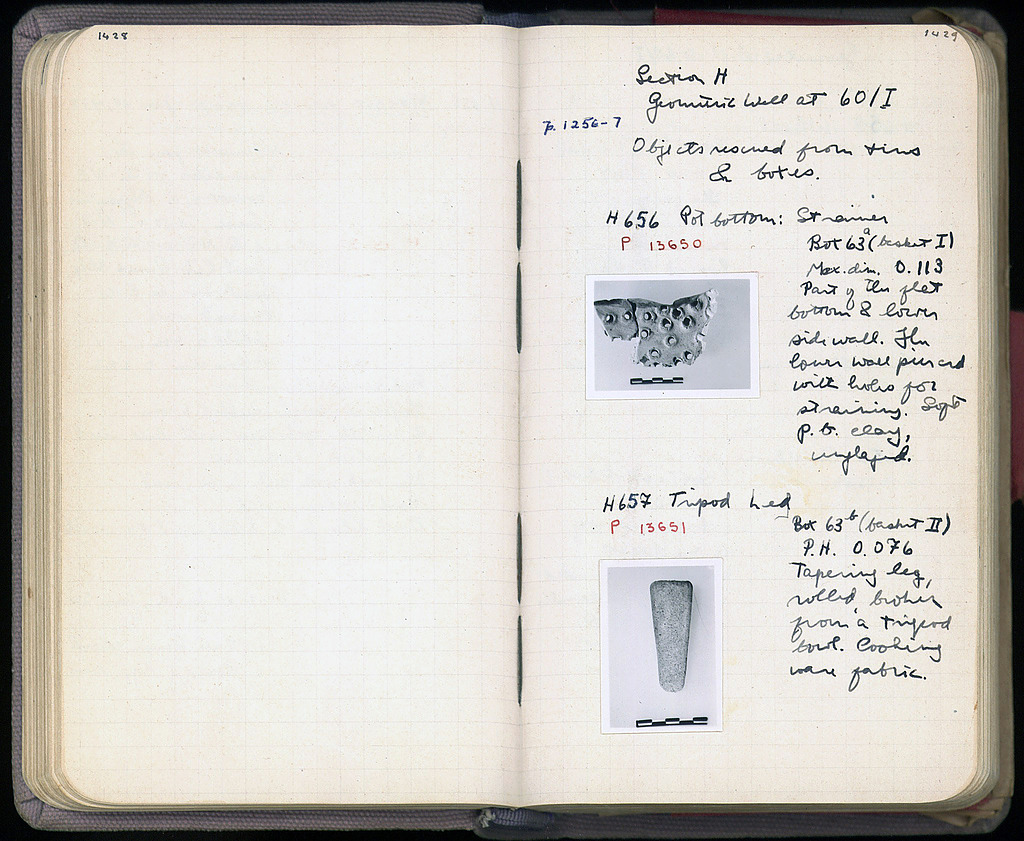 1428
1429
Section H
Geometric Well at 60/I
p. 1256-7
Objects rescued from tins
& boxes.
H656 Pot bottom: Strainer
P 13650
Box 63a (basket I)
Max. dim. 0.113
Part of the flat
bottom & lower
side wall. The
lower wall pierced
with holes for
straining. Soft
p. b. clay,
unglazed.
H657 Tripod Leg
P 13651
Box 63b (basket II)
P.H. 0.076
Tapering leg,
rolled, broken
from a tripod
bowl. Cooking
ware fabric.